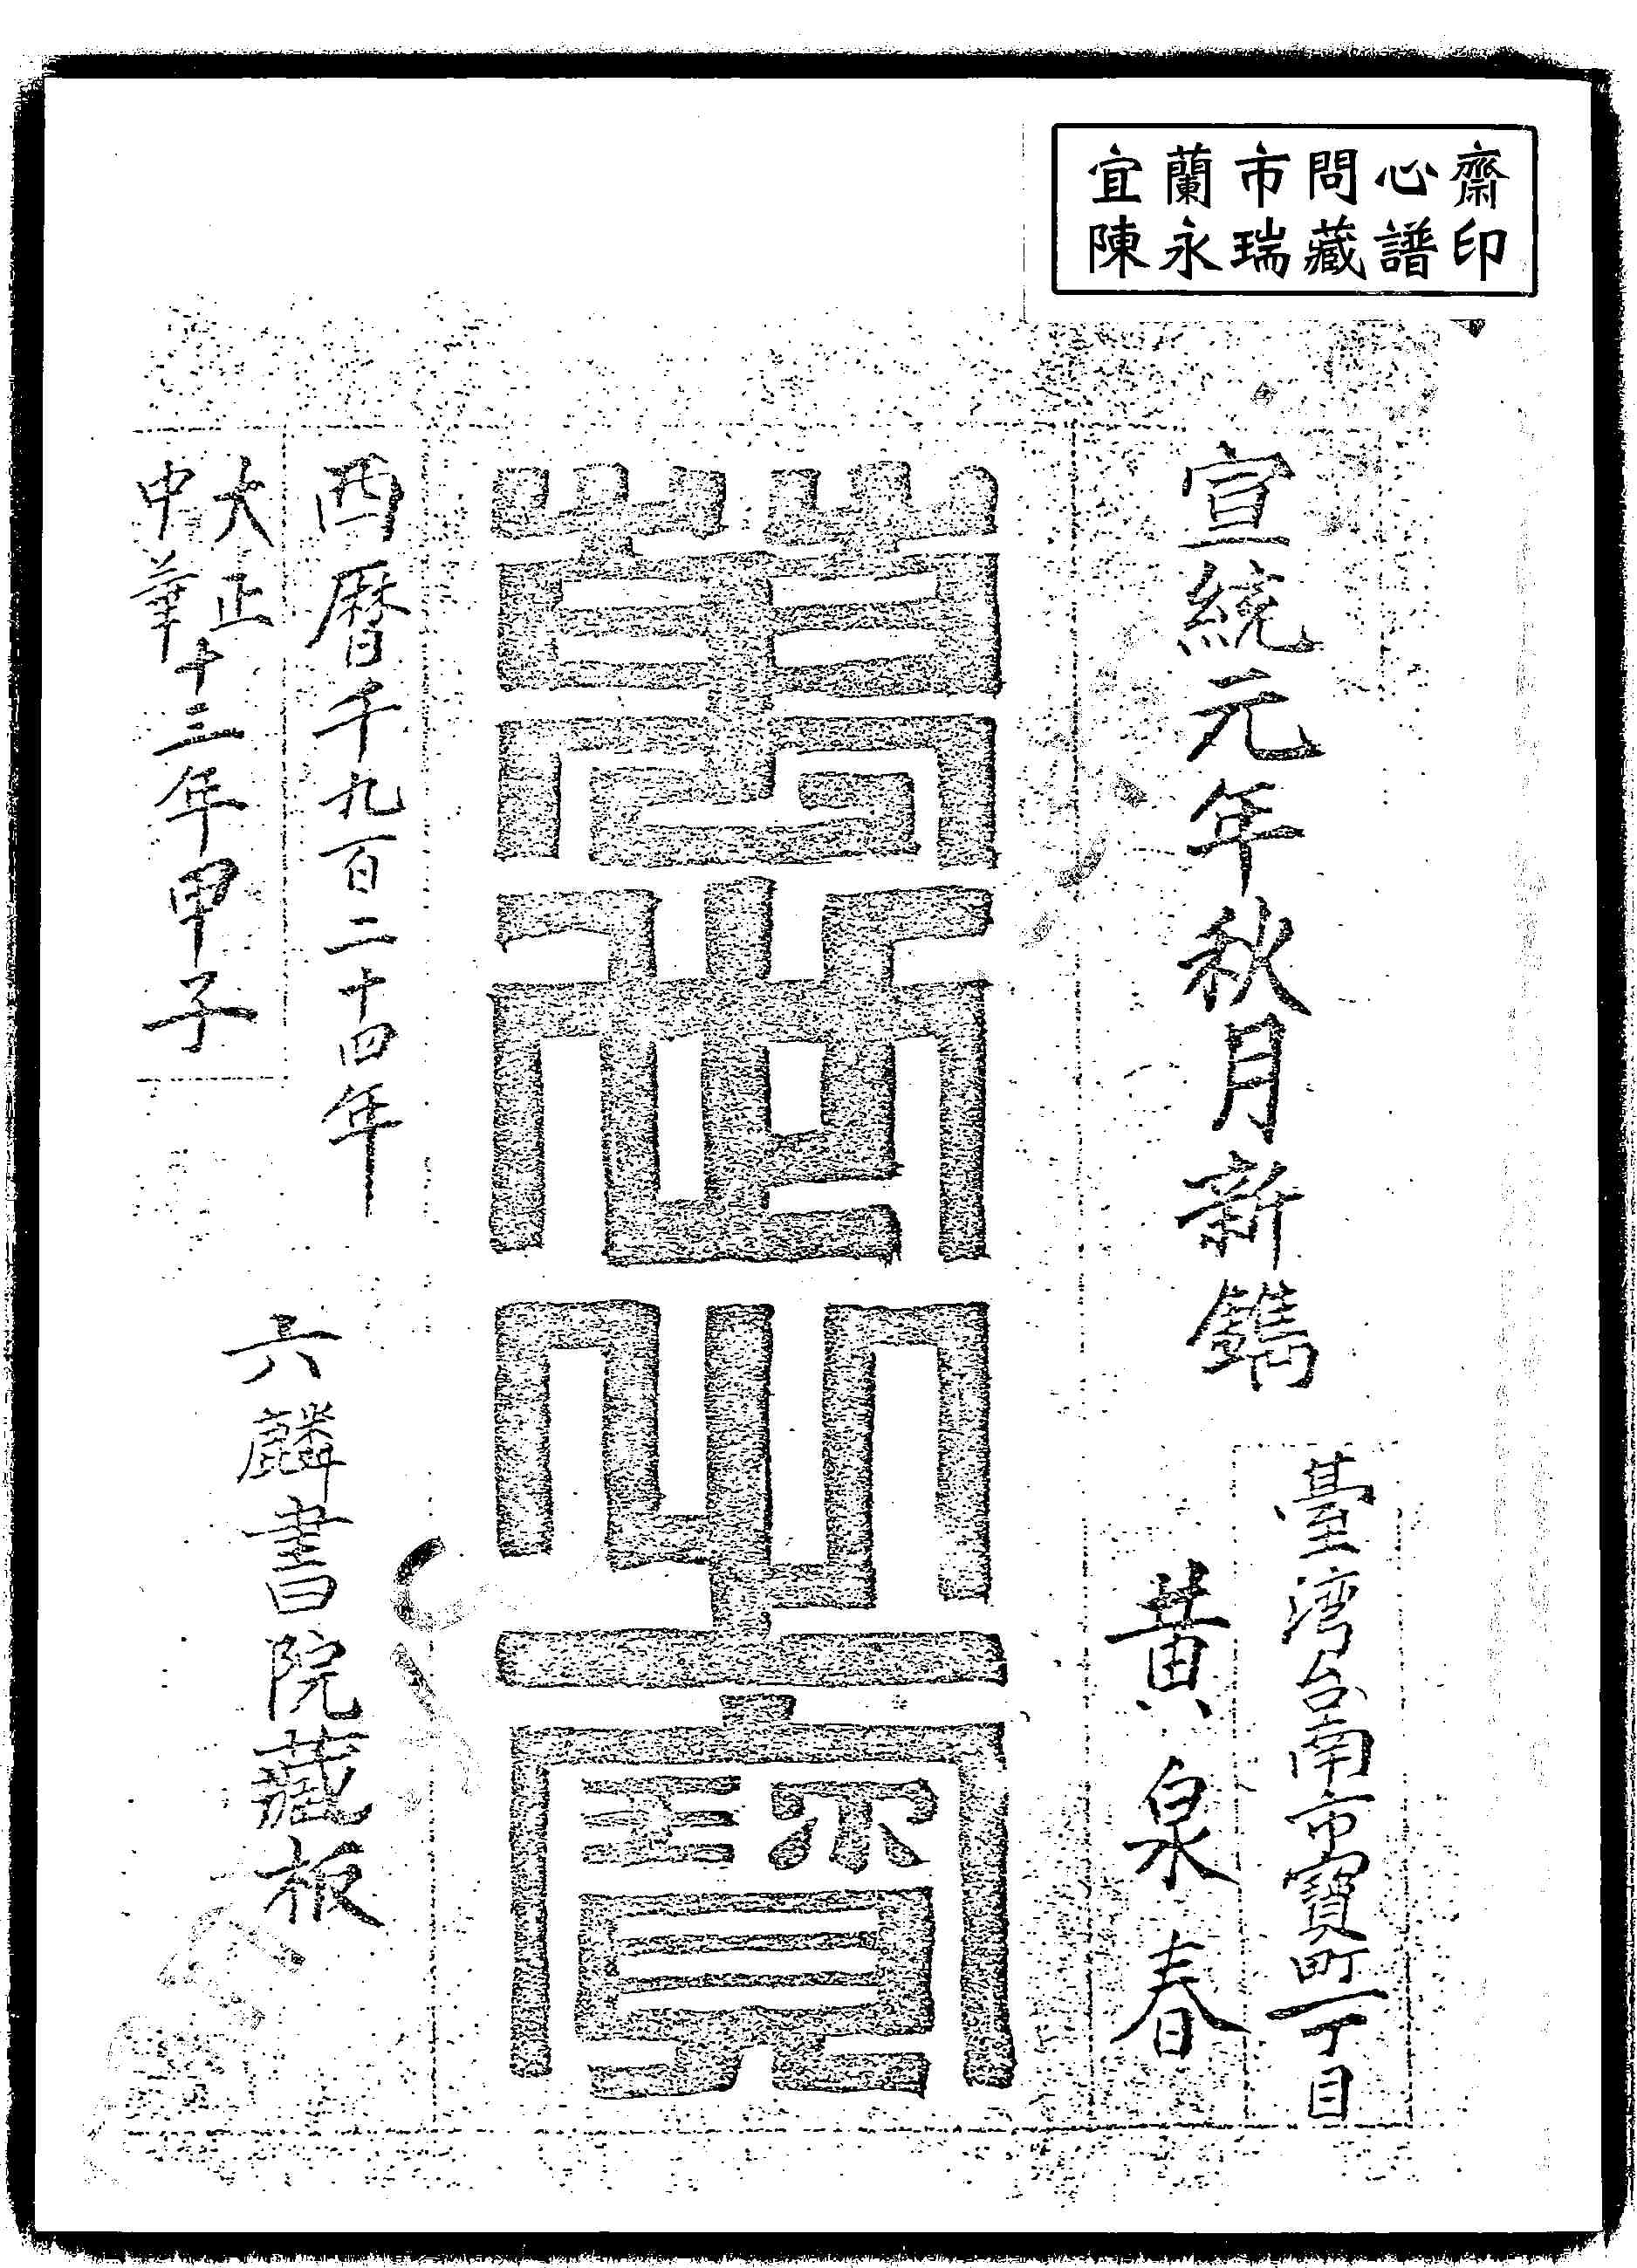 宜蘭市問心齋
陳永瑞藏譜印
宣統元年秋月新鐫
臺湾台南市寶町一丁目
黄泉春
萬世之寶
西曆千九百二十四年
大正
中華
十三年甲子
六麟書院藏板